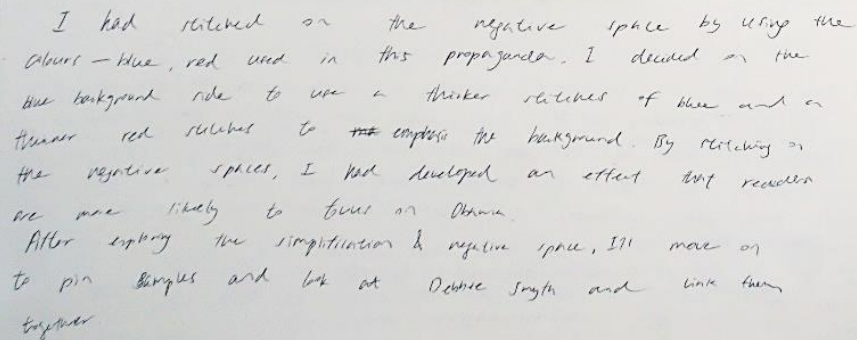 I had stitched on the negative space by using the
colours - blue, red used in this propaganda. I decided on the
blue background side to use a thicker stitches of blue and a
thinner red stitches to emphasis the background. By stitching on
the negative spaces, I had developed an effect that readers
are more likely to focus on Obama.
After exploring the simplification & negative space, I'll move on
to pin samples and look at Debbie Smyth and link them
together.